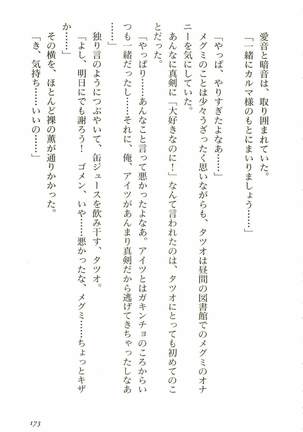 愛音と暗音は、取り囲まれていた。
「一緒にカルマ様のもとにまいりましょう……」
「やっぱ、やりすぎたよなあ……」
メグミのことは少々うざったく思いながらも、タツオは昼間の図書館でのメグミのオナ
ニーを気にしていた。
あんなに真剣に「大好きなのに！」なんて言われたのは、タツオにとっても初めてのこ
とだった。
「やっぱり……あんなこと言って悪かったよなあ。アイツとはガキンチョのころからい
つも一緒だったし……それに、俺、アイツがあんまり真剣だから逃げてきちゃったしなあ
……」
独り言のようにつぶやいて、缶ジュースを飲み干す、タツオ。
「よし、明日にでも謝ろう！　ゴメン、いや……悪かったな、メグミ……ちょっとキザ
か……」
その横を、ほとんど裸の薫が通りかかった。
「き、気持ち……いいの……」
173